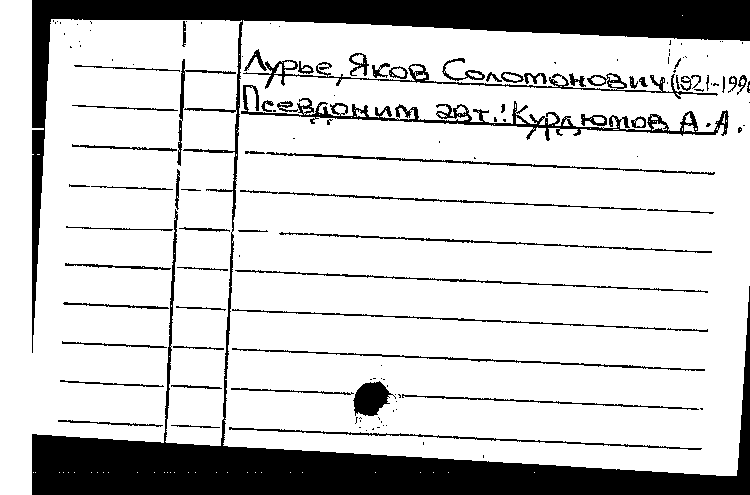 Лурье, Яков Соломонович (1921-1996
Псевдоним авт.: Курдюмов А.А.